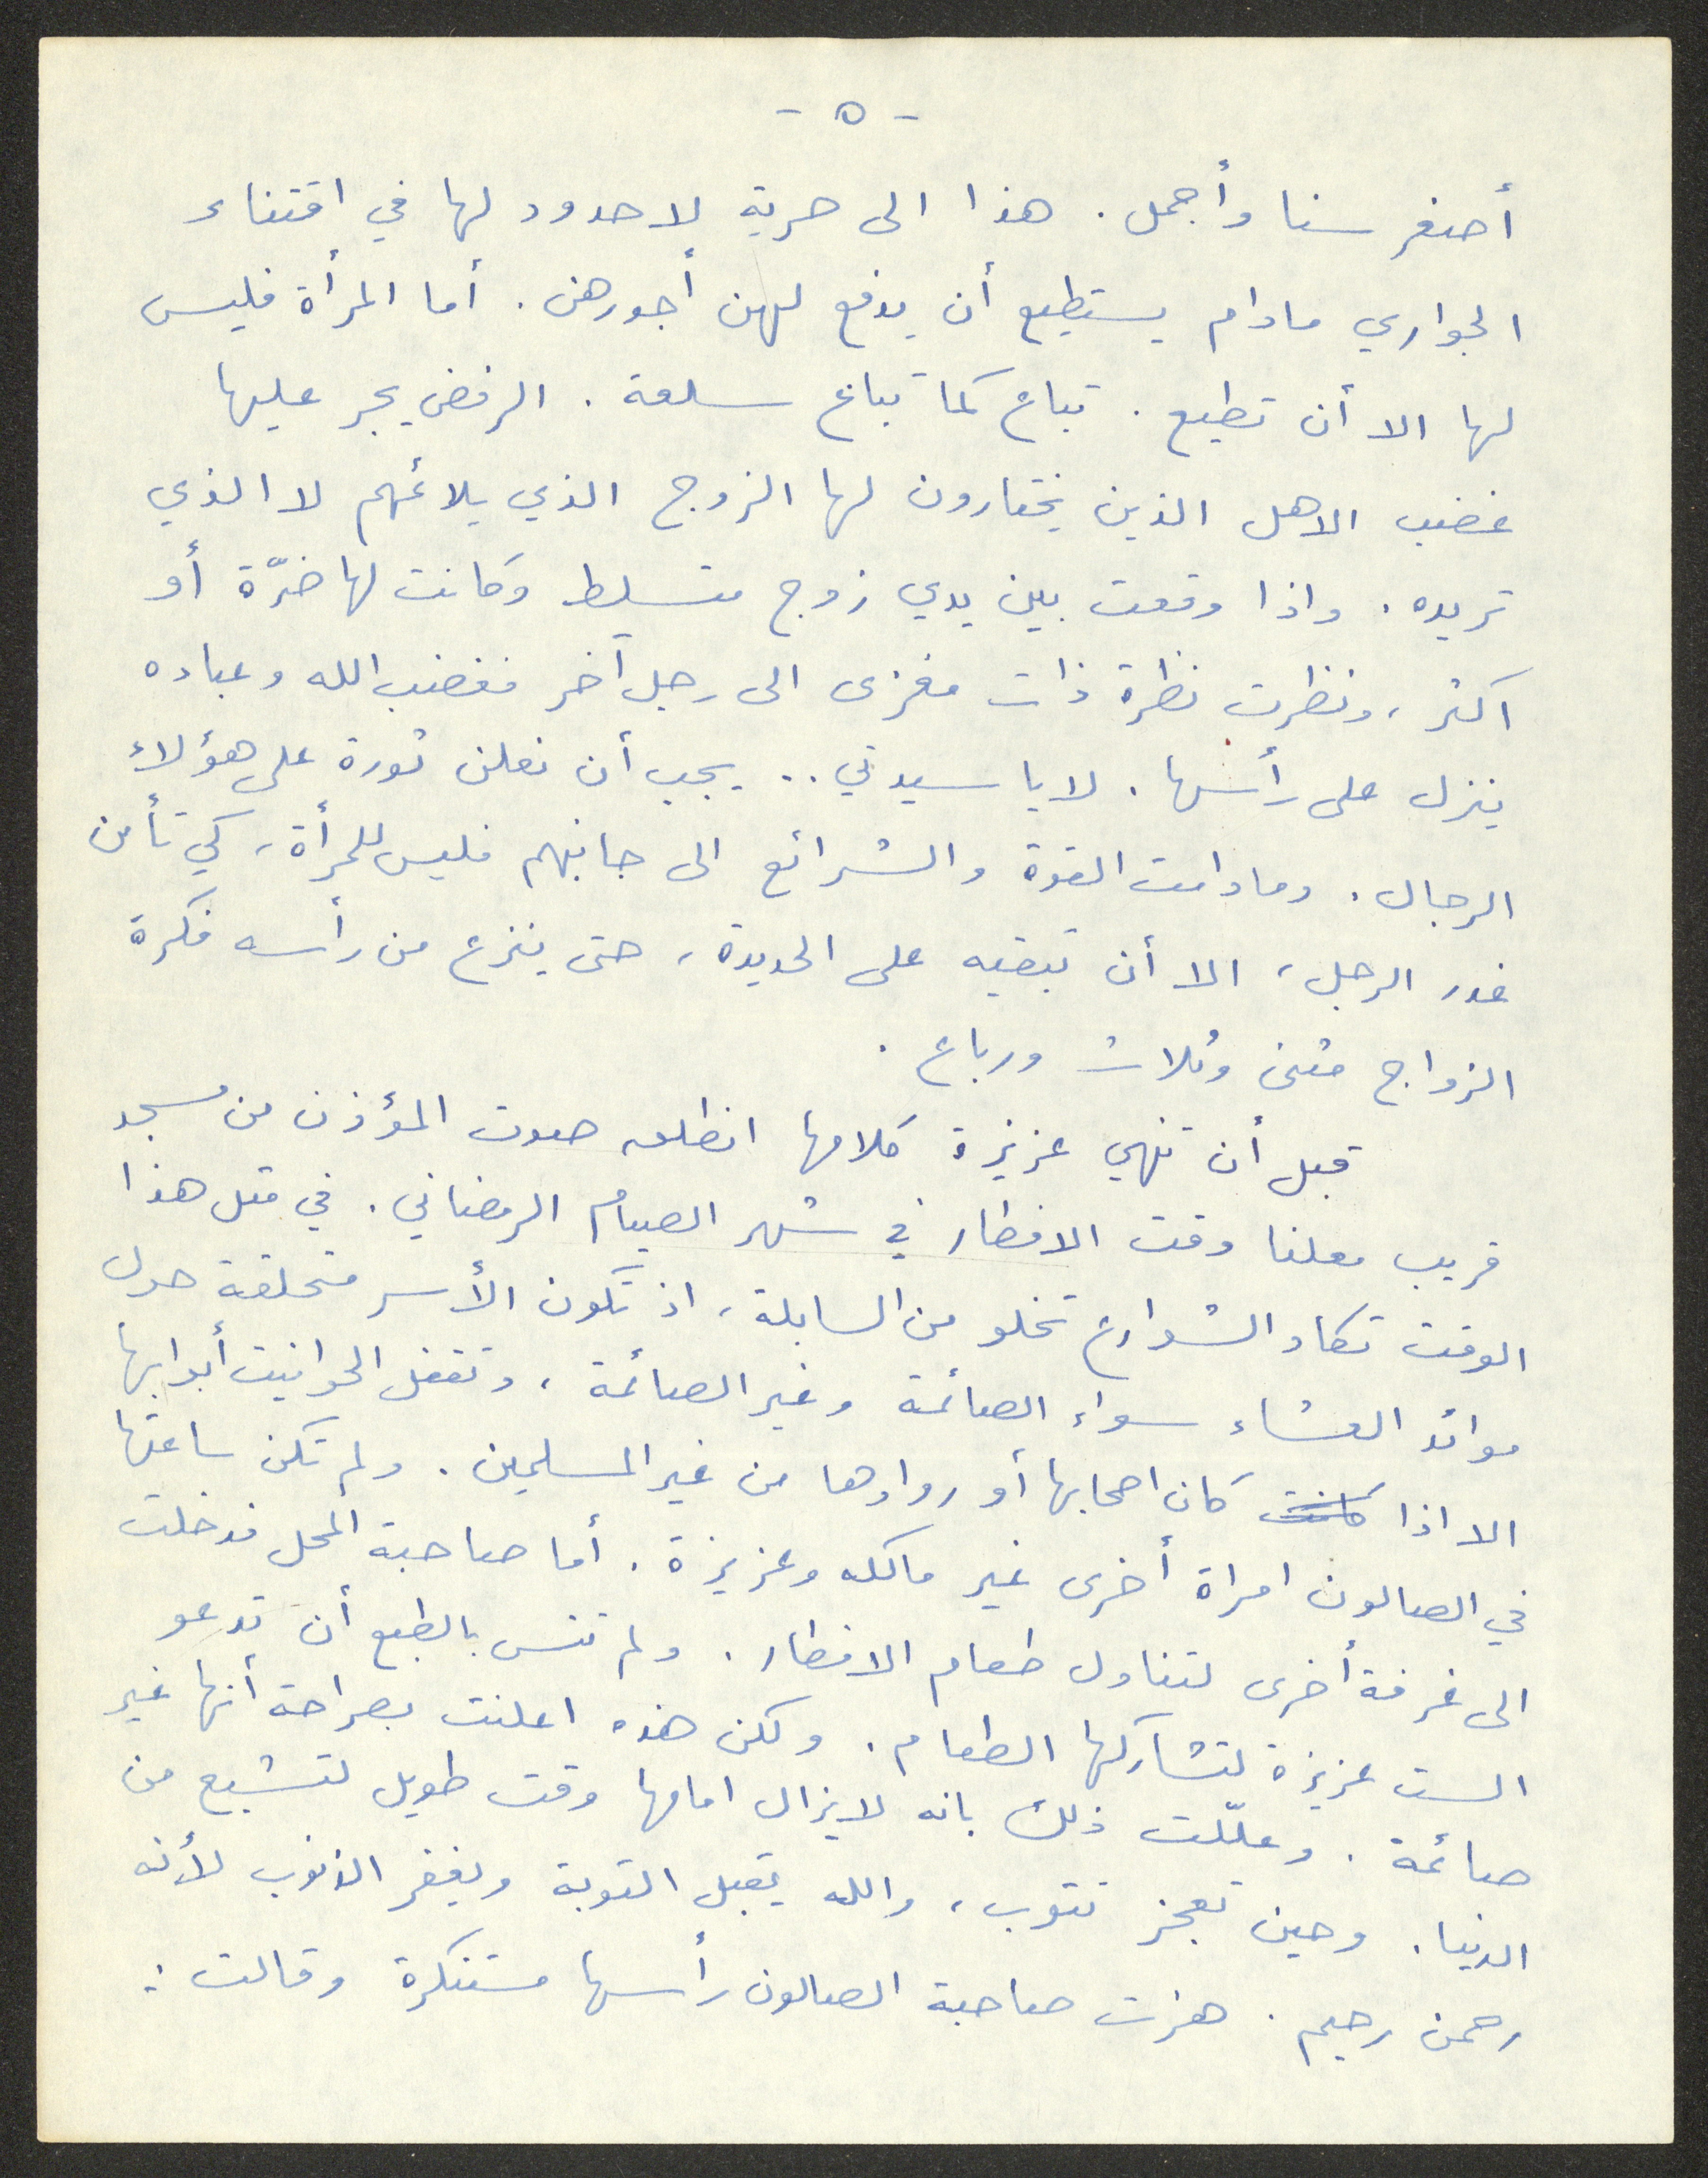 - ٥ -
أصغر سنا وأجمل. هذا الى حرية لا حدود لها في اقتناء
الجواري مادام يستطيع أن يدفع لهن أجورهن. أما المرأة فليس
لها الا أن تطيع. تباع كما تباع سلعة. الرفض يجر عليها
غضب الاهل الذين يختارون لها الزوج الذي يلائمهم لا الذي
تريده. واذا وقعت بين يدي زوج متسلط وكانت لها ضرّة أو
اكثر، ونظرت نظرة ذات مغزى الى رجل آخر فغضب الله وعباده
ينزل على رأسها. لا يا سيدتي.. يجب أن نعلن ثورة على هؤلاء
الرجال. وما دامت القوة والشرائع الى جانبهم فليس للمرأة، كي تأمن
غدر الرجل، الا أن تبقيه على الحديدة، حتى ينزع من رأسه فكرة
الزواج مثنى وثلاث ورباع.
قبل أن تنهي عزيزة كلامها انطلق صوت المؤذن من مسجد
قريب معلنا وقت الافطار في شهر الصيام الرمضاني. في مثل هذا
الوقت تكاد الشوارع تخلو من السابلة، اذ تكون الأسر متحلقة حول
موائد العشاء سواء الصائمة وغير الصائمة، وتقفل الحوانيت أبوابها
الا اذا كانت كان اصحابها أو روادها من غير المسلمين. ولم تكن ساعتها
في الصالون امراة أخرى غير مالكه وعزيزة. أما صاحبة المحل فدخلت
الى غرفة أخرى لتناول طعام الافطار. ولم تنس بالطبع أن تدعو
الست عزيزة لتشاركها الطعام. ولكن هذه اعلنت بصراحة أنها غير
صائمة. وعلّلت ذلك بانه لايزال امامها وقت طويل لتشبع من
الدنيا. وحين تعجز تتوب، والله يقبل التوبة ويغفر الذنوب لأنه
رحمن رحيم. هزت صاحبة الصالون رأسها مستنكرة وقالت: